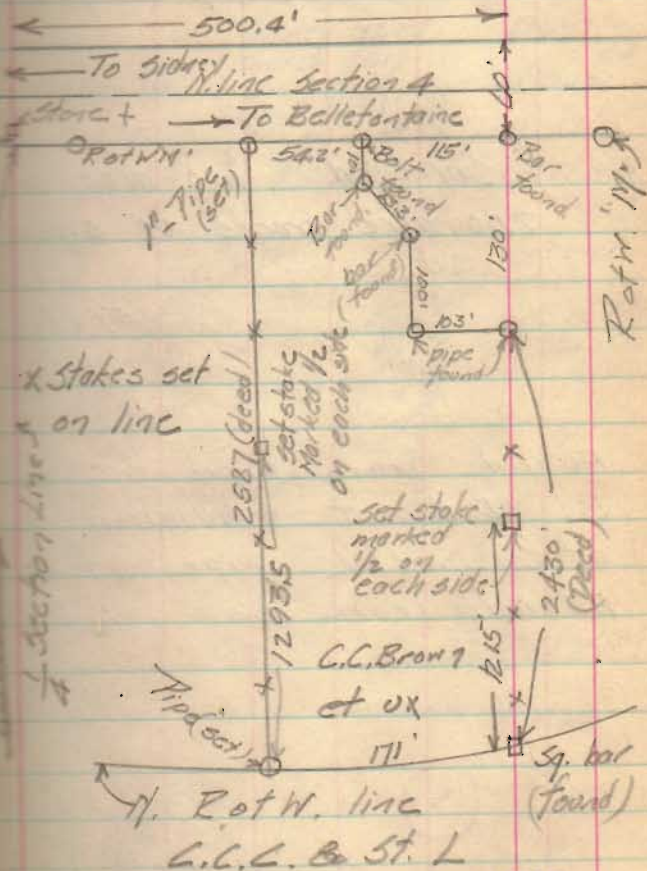 500.4'
To Sidney
N. line Section 4
60'
Stone +
To Bellefontaine
R of W M.
54.2'
Bolt found
115'
Bar found
1" Pipe (set)
Bar found
bar found
130'
R of W. "M."
100'
103'
pipe found
x Stakes set
on line
2587 (deed)
Set stake
Marked 1/2
on each side
set stake
marked
1/2 on
each side
2430'
(Deed)
1/4 Section Line
1293.5
1215'
C.C. Brown
et ux
Pipe (set)
171'
Sq. bar
(found)
N. R of W. line
C.C.C. & St. L